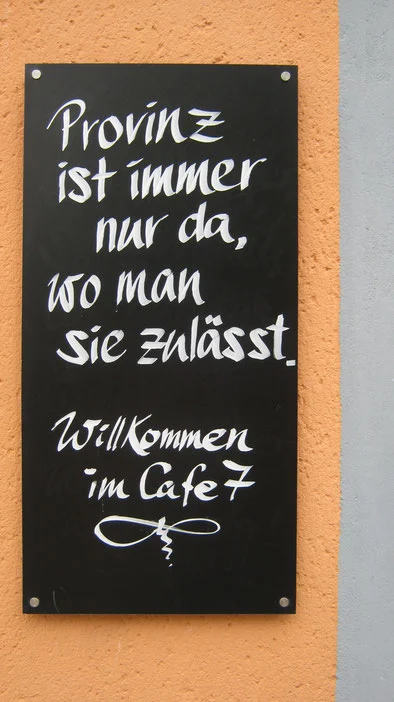 Provinz
ist immer
nur da,
wo man
sie zulässt.
Willkommen
im Cafe 7